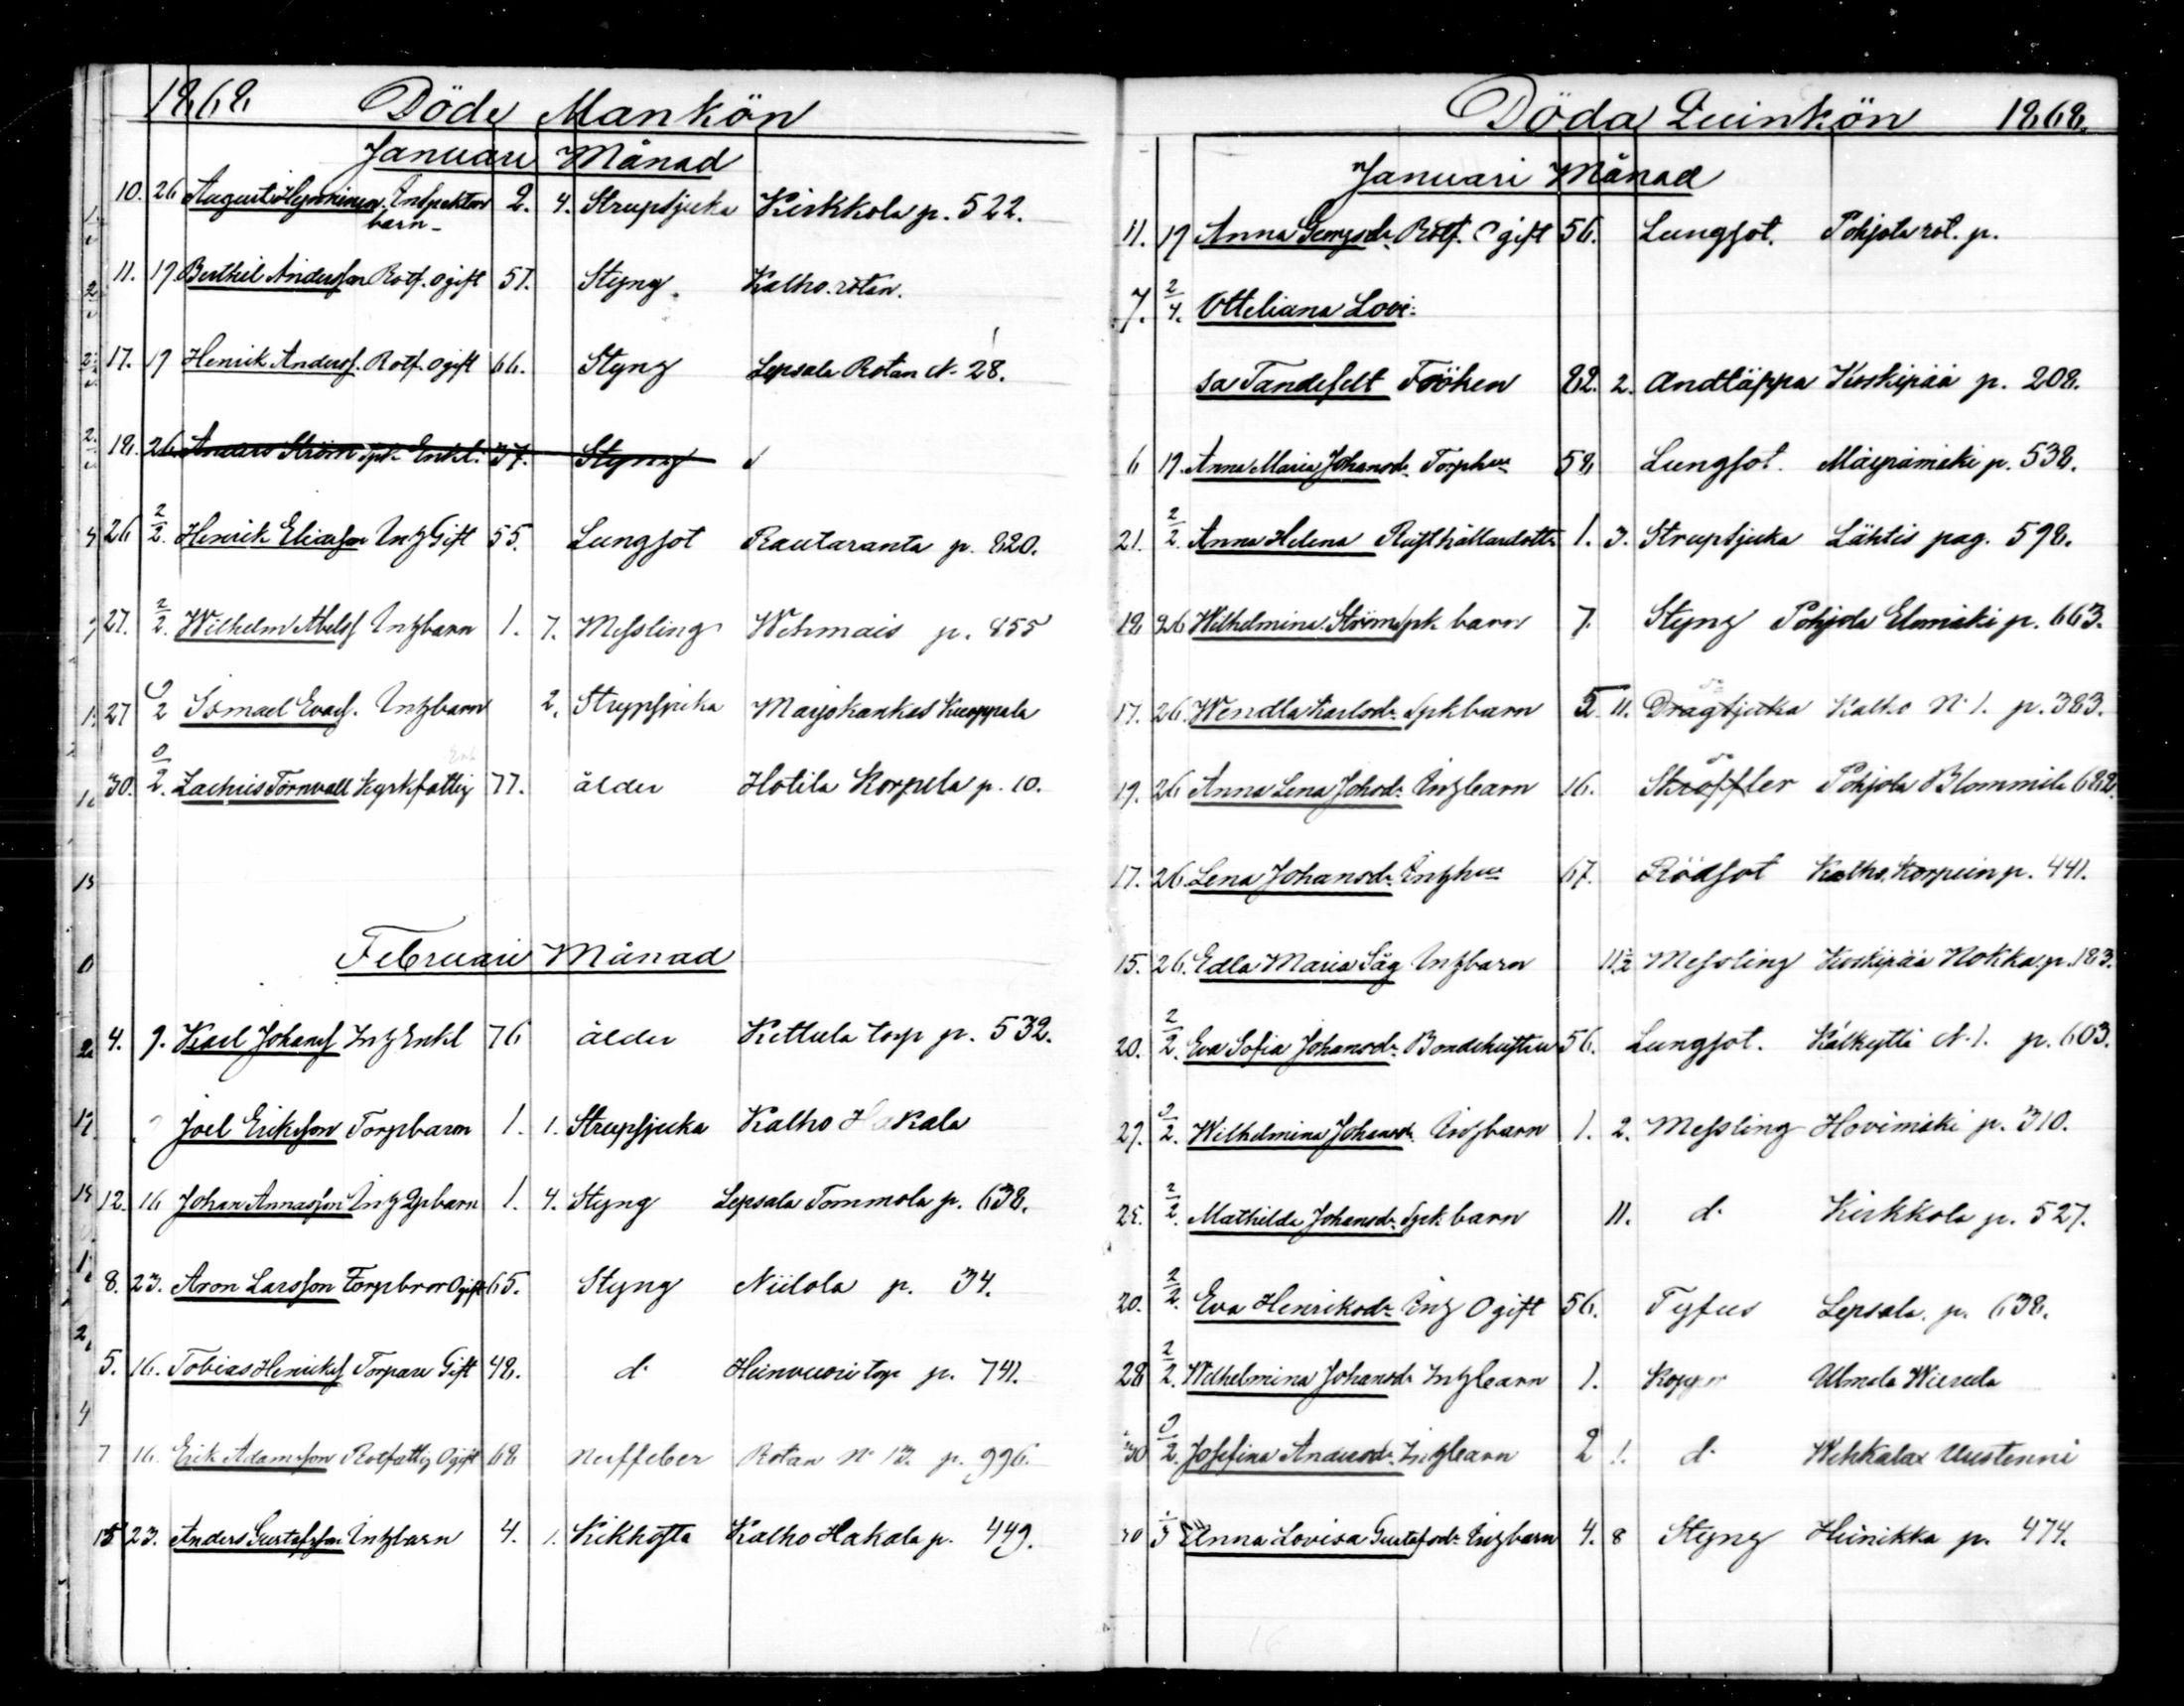 1868 Döde Mankön
Januari Månad
10. 26 August Inspektor 2. 4. Strupsjuka Kirkkola p. 522.
barn
11. 19 Berthil Andersson Rotf. ogift 51. Styng. Kalho rotan.
17. 19 Henrik Anderss. Rotf. ogift 66. Styng Lepsala Rotan N. 28.
18. 26 Anders Ström Enkl. 37. Styng
26 2/2. Henrik Eliasson Inh Gift 55. Lungsot Rautaranta p. 820.
27. 2/2. Wilhelm Abelss Inhbarn 1. 7. Messling Wehmais p. 455
27 2/2 Ismael Evass. Inhbarn 2. Strypsjuka Marjokankas Kuoppala
30. 2/2. Zachris Törnvall Kyrkfattig 77. ålder Hotila Korpela p. 10.
Februari Månad
4. 9. Karl Johanss Inh Enkl 76 ålder Kettula torp p. 532.
Joel Eriksson Torpbarn 1. 1. Strupsjuka Kalho Hakala
12. 16 Johan Annasson Inh barn 1. 4. Styng Lepsala Tommola p. 638.
8. 23. Aron Larsson Torpbror Ogift 65. Styng Niilola p. 34.
5. 16. Tobias Henrikss Torpare Gift 48. d. Heinvuori torp p. 741.
7 16. Erik Adamsson Rotfattig Ogift 68 Nerffeber Rotan N. 13. p. 996.
15 23. Anders Gustafsson Inhbarn 4. 1. Kikhosta Kalho Hakala p. 449.
Döda Quinkön 1868.
Januari Månad
11. 19 Anna Georgsdr. Rotf. Ogift 56. Lungsot. Pohjola rot. p.
7. 2/4. Otteliana Lovi-
sa Tandefelt Fröken 82. 2. Andtäppa Koskipää p. 208.
6 19. Anna Maria Johansdr. Torphu 58 Lungsot. p. 538.
21. 2/2. Anna Helena Rusthållardottr 1. 3. Strupsjuka Lähtis pag. 598.
18 26 Wilhelmina Ström spk barn 7. Styng Pohjola Elomäki p. 663.
17. 26. Wendla Karlsdr. Spkbarn 5. 11. Dragsjuka Kalho N. 1. p. 383.
19. 26 Anna Lena Johsdr. Inhbarn 16. Skroffler Pohjola Blommila 682.
17. 26. Lena Johansdr. Inhhu 67. Rödsot Kalho p. 441.
15. 26. Edla Maria Säg Inhbarn 11 1/2 Messling Koskipää Nokka p. 183.
20. 2/2. Eva Sofia Johansdr. Bondehustru 56. Lungsot. Kälkyttä N. 1. p. 603.
29. 2/2. Wilhelmina Johansdr. Inhbarn 1. 2. Messling Hovimäki p. 310.
25. 2/2. Mathilda Johansdr. Spk barn 11. d. Kirkkola p. 527.
20. 2/2. Eva Henriksdr. Inh Ogift 56. Tyfus Lepsala. p. 638.
28 2/2. Wilhelmina Johansdr. Inhbarn 1. Koppor Ulmala Wierula
30 2/2. Josefina Andersdr. Inhbarn 2 1. d. Wehkalax Uustenni
30 1/3 Anna Lovisa Gustafsdr. Inhbarn 4. 8 Styng Heinikka p. 474.